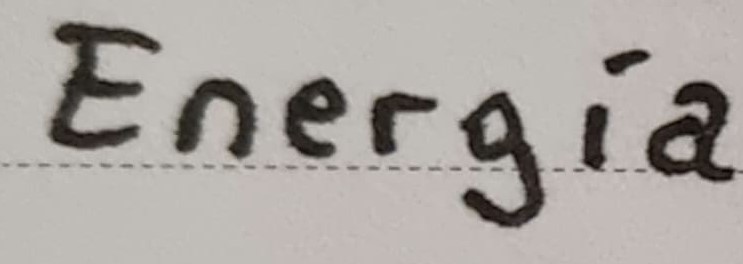 Energía